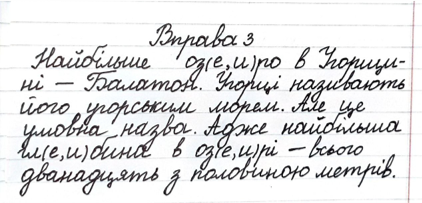 Вправа 3
Найбільше оз(е,и)ро в Угорщи-
ні — Балатон. Угорці називають
його угорським морем. Але це
умовна назва. Адже найбільша
гл(е,и)бина в оз(е,и)рі — всього
дванадцять з половиною метрів.